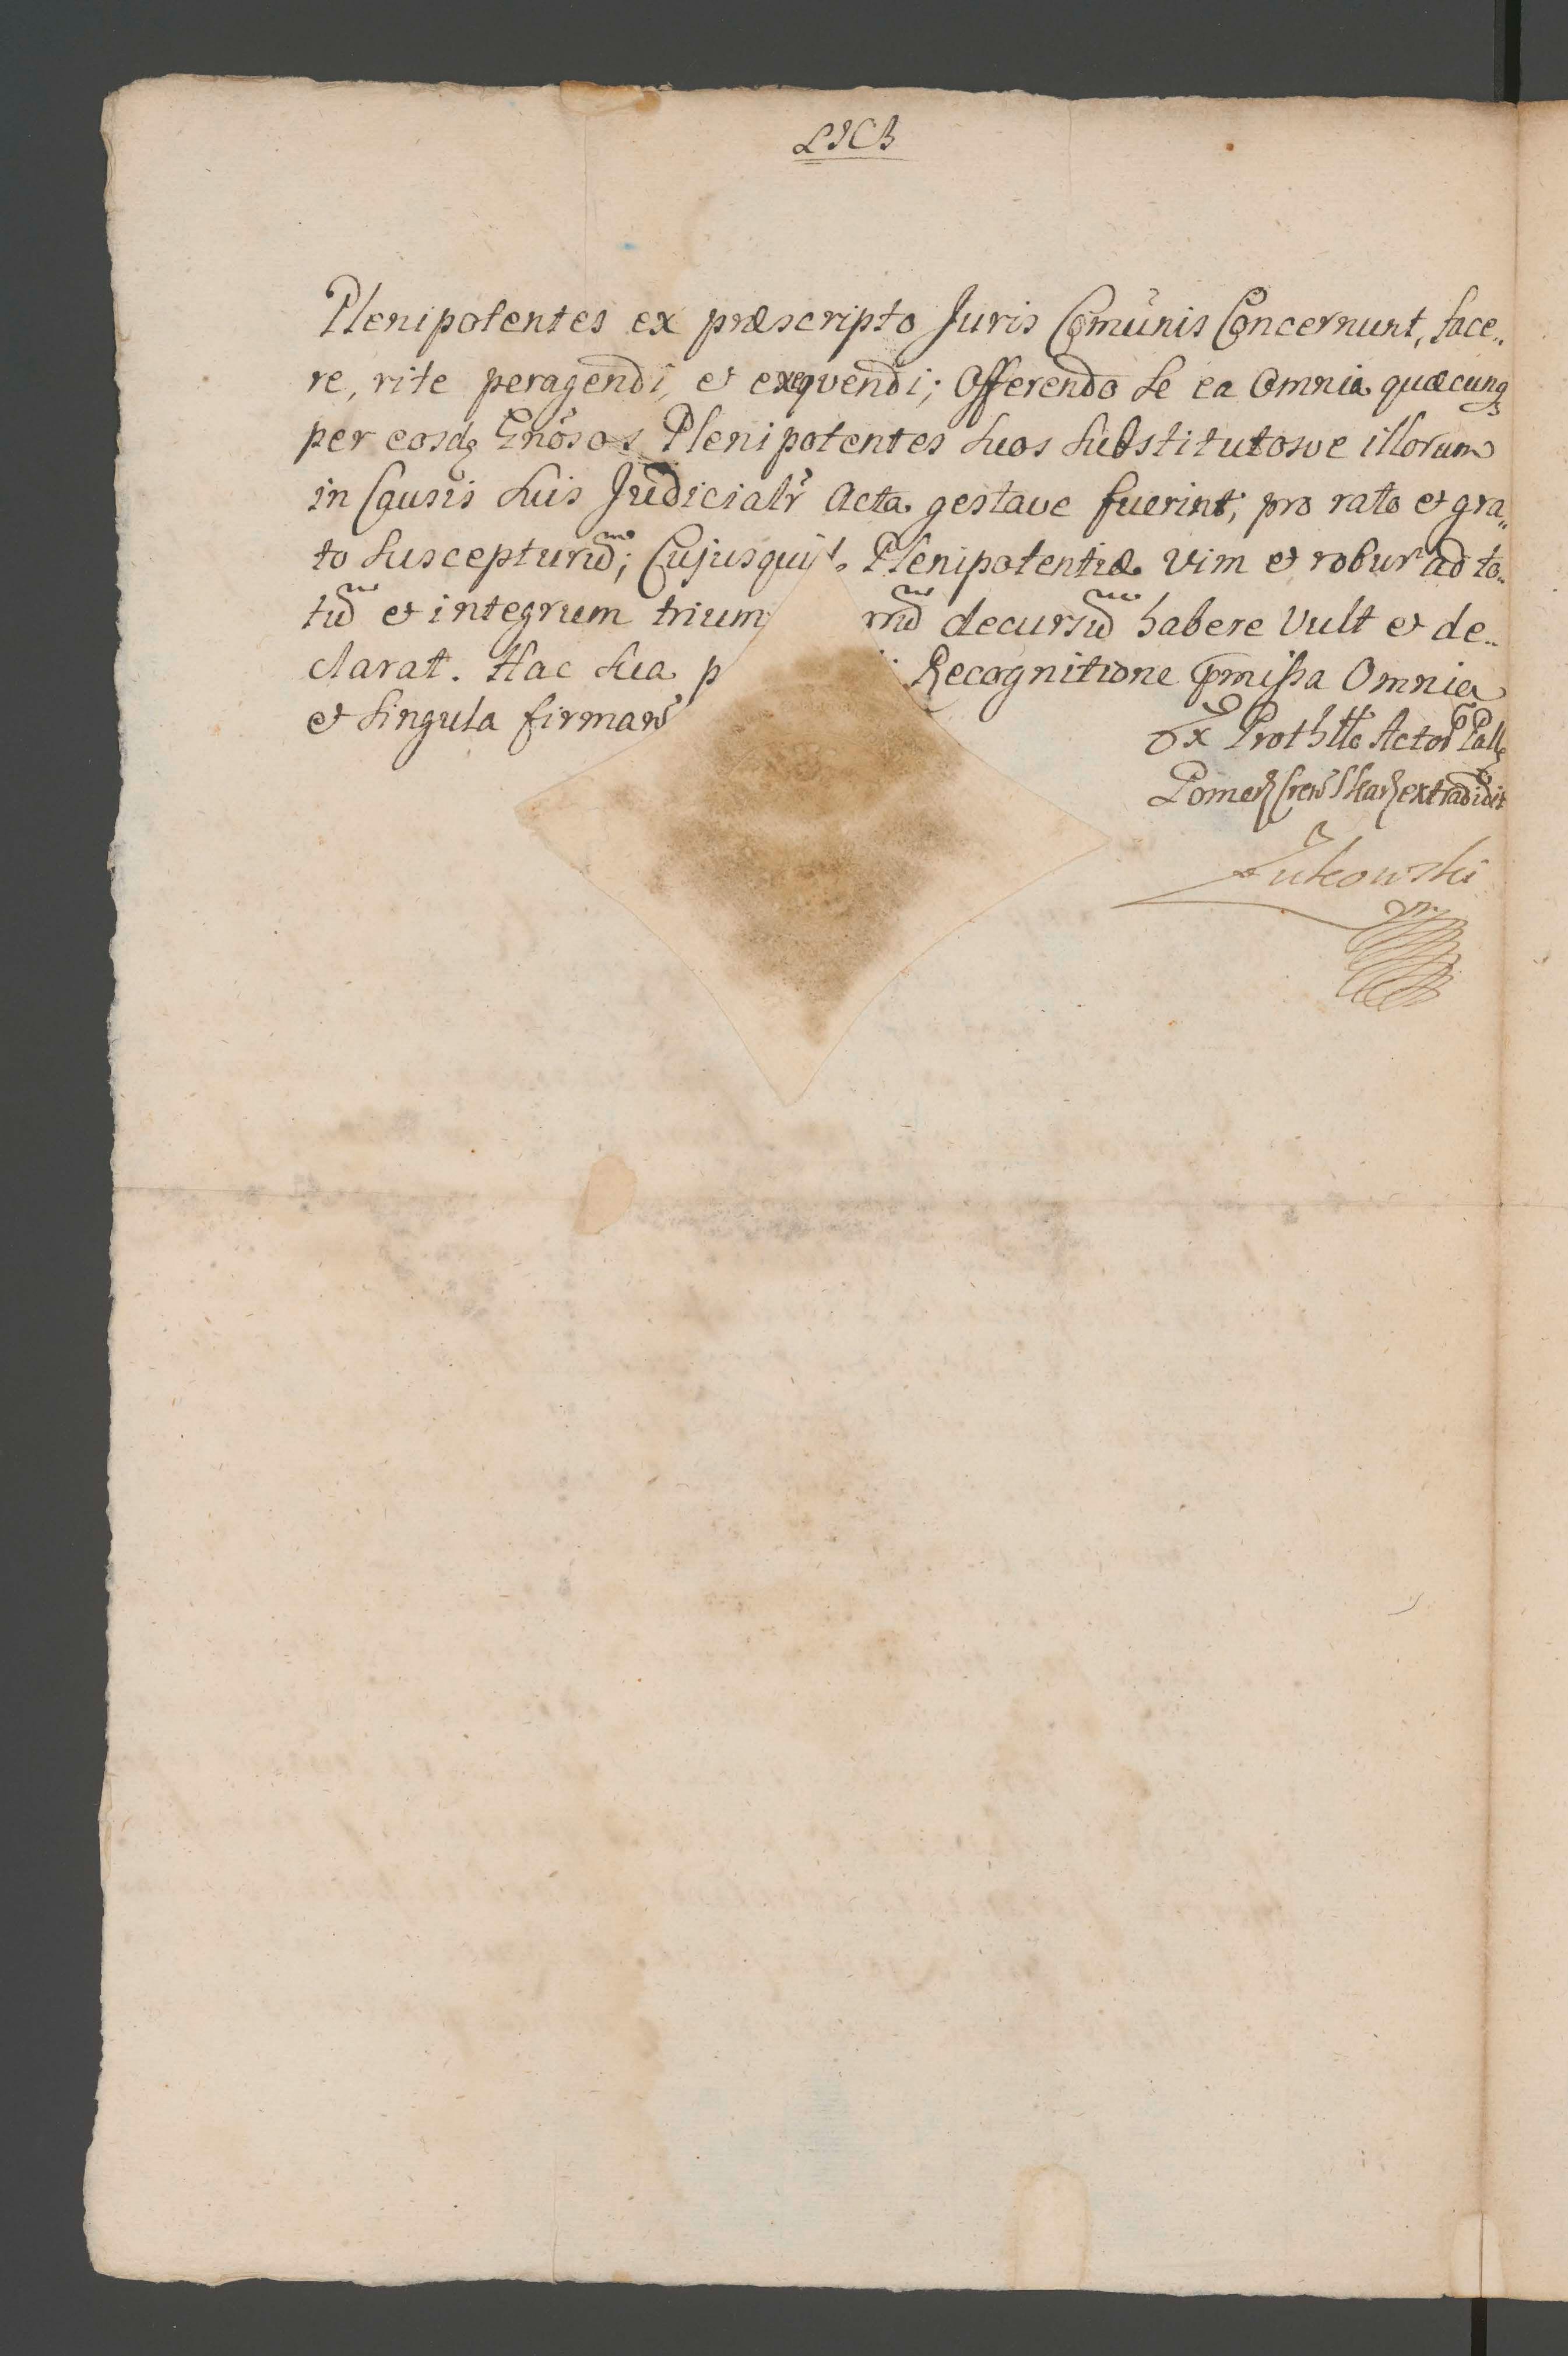 LJCB
Plenipotentes ex præscripto Juris Comunis Concernunt, face„
re, rite peragendi, et exeqvendi; Offerendo se ea Omnia quæcunq
per eosdq Gnosos Plenipotentes suos substitutosve illorum
in Causis suis Judicialr Acta gestave fuerint; pro rato et gra„
to suscepturum; Cujusquid. Plenipotentiæ vim et robur ad to„
tum et integrum trium decursum habere Vult et de„
clarat. Hac sua p Recognitione pmissa Omnia
et singula firman
Ex Prothllo Actor Pall
Pomer Crew Skar extradidit
Żukowski